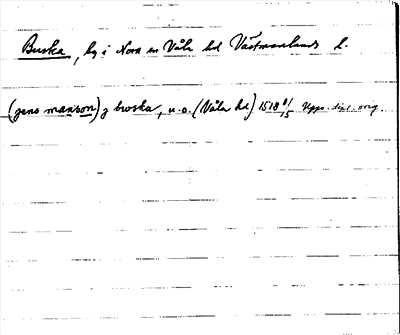 Buska, by i Nora sn Våla hd Västmanlands l.
(jens manson) j bwska, u.o. (Våla hd) 1518 Upps. dipl. orig.